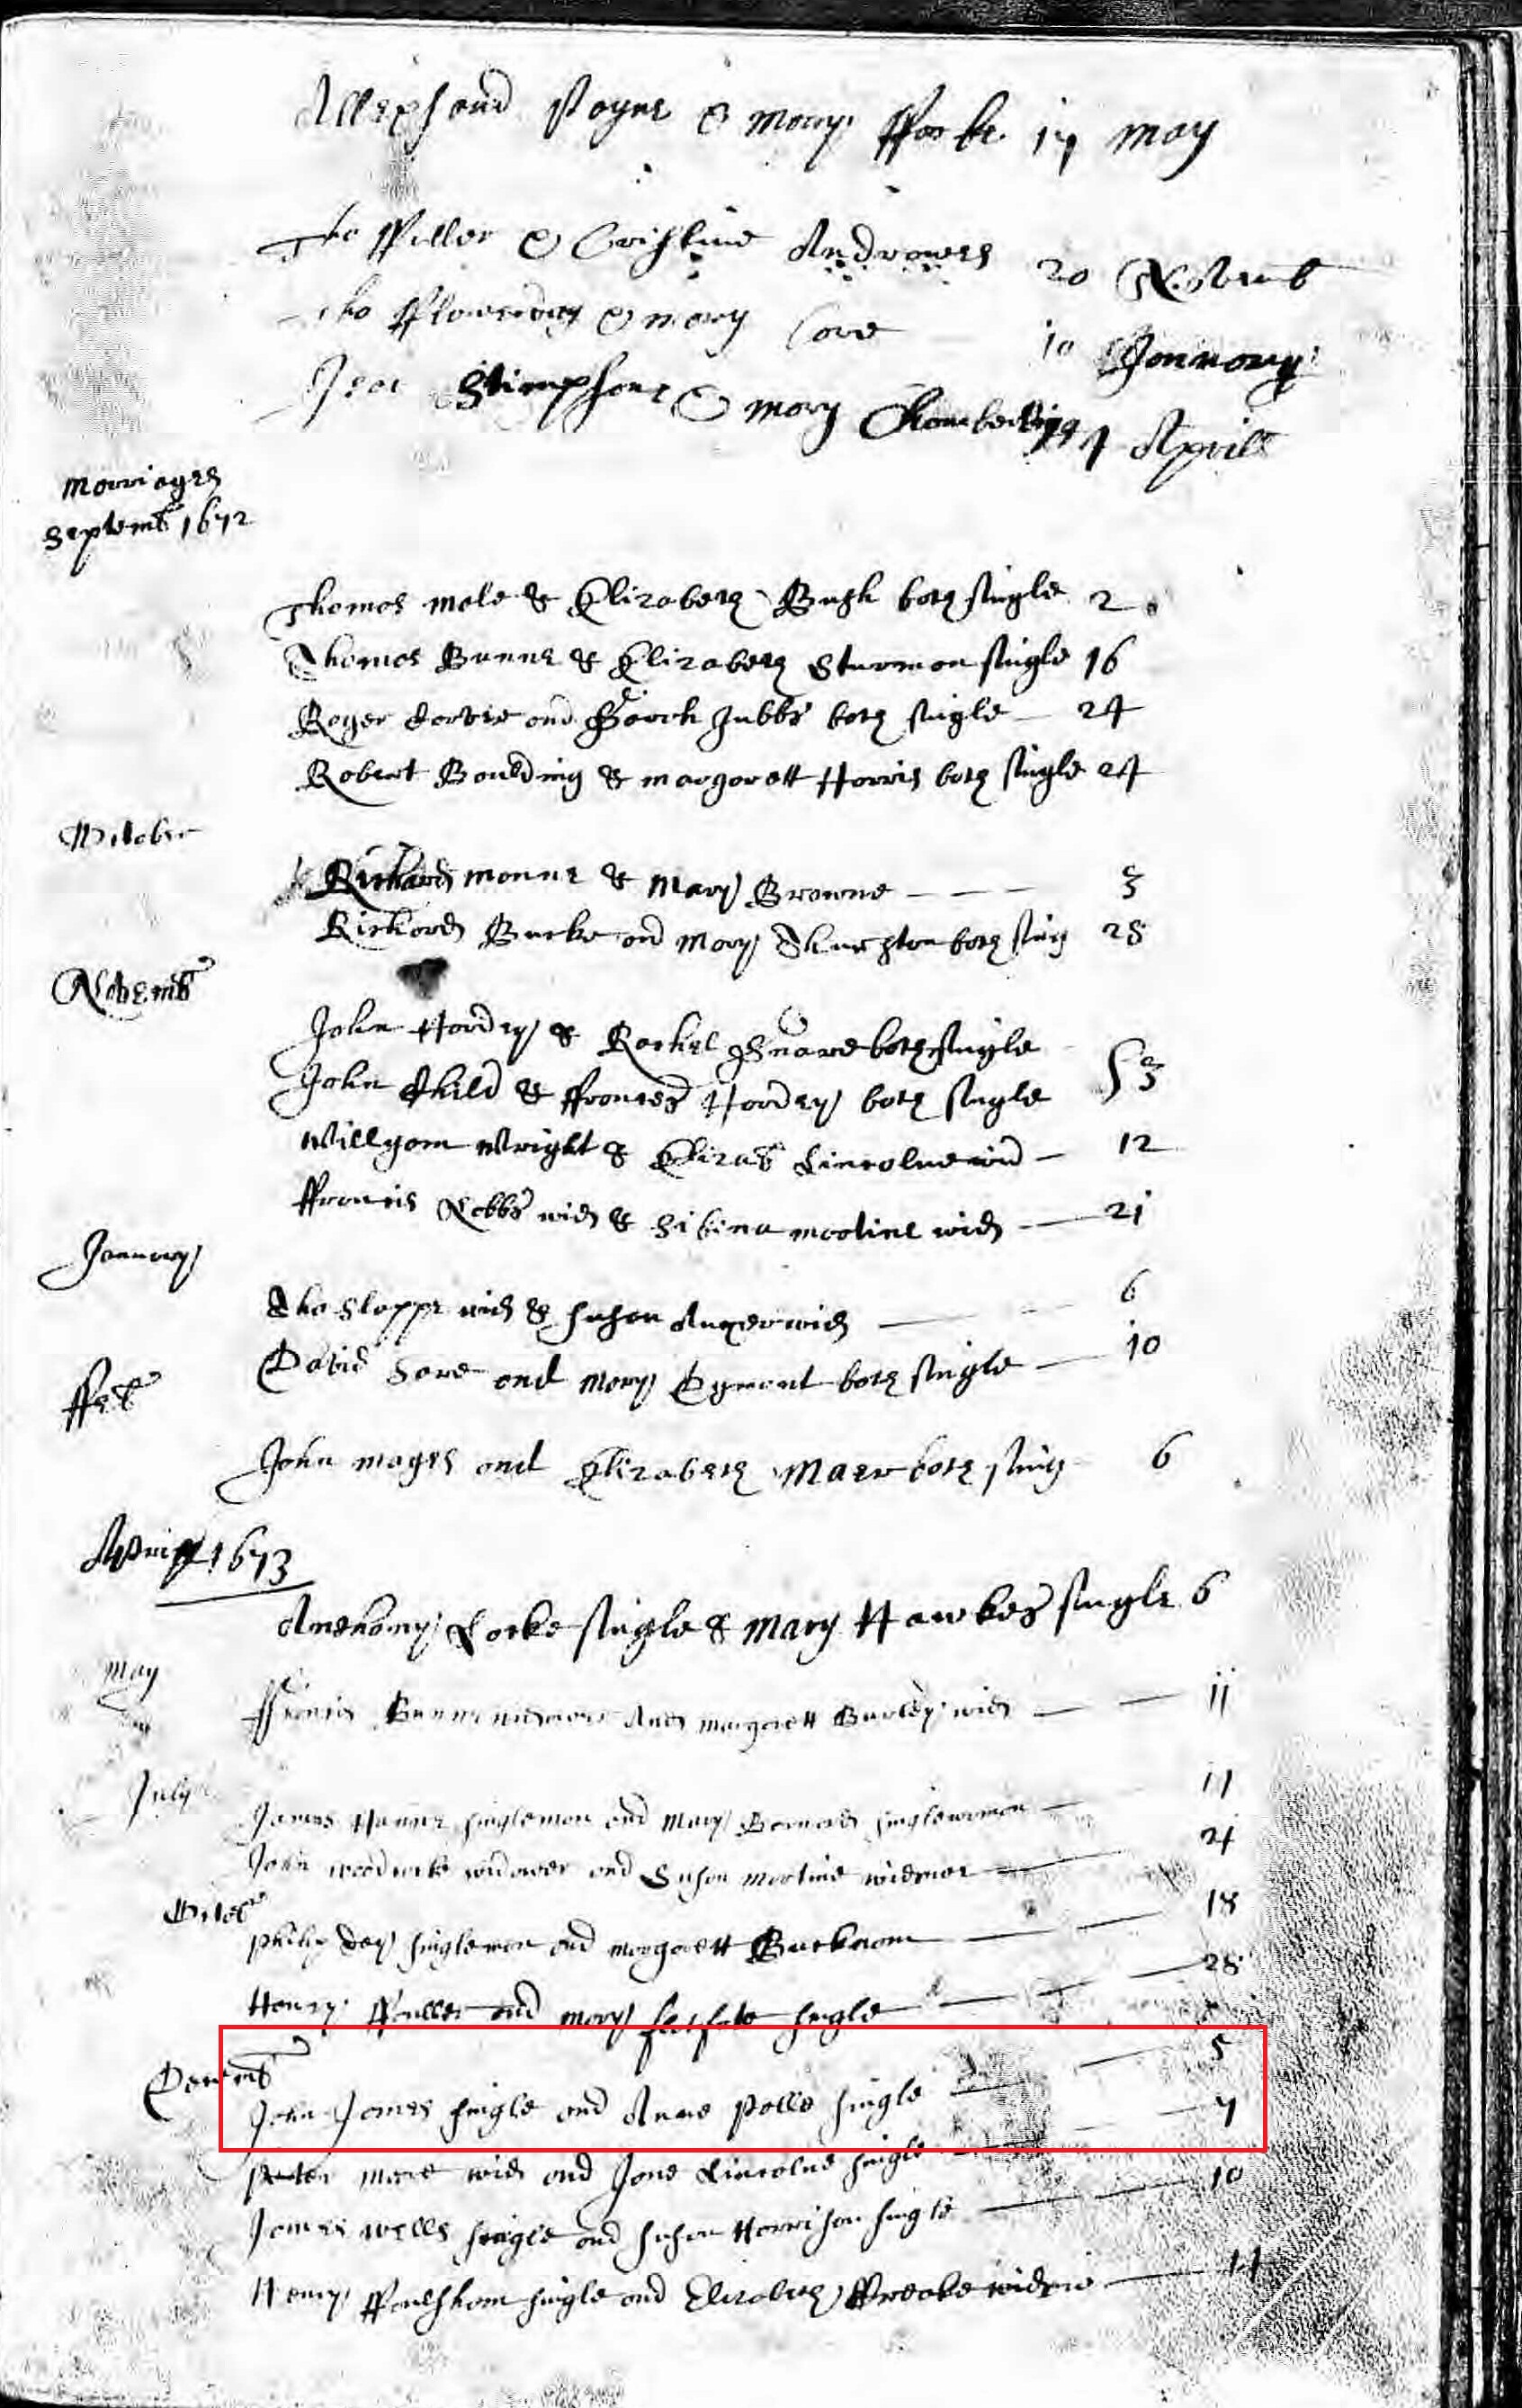 Payne & Mary 17 May
Tho ffuller & Cristine Androwes 20 Novemb
Tho & Mary Cove 10 Jannary
Stimpsone & Mary Aprill
Marriages
Septemb 1672
Thomas Mole & Elizabeth Bush both single 2
Thomas Bunne & Elizabeth Sturmon single 16
Roger and Sarah Jubbs both single 24
Robert Boulding & Margarett Harris both single 24
October
Richard Monne & Mary Browne 3
Richard Burke and Mary both sing 28
Novemb
John Hardey & Rachel Snare both single
John Child & ffrances Hardey both single 3
Willyam Wright & Elizab Lincolne wid 12
ffrancis Cobbs wid & Martine wid 21
January
Tho Slappe wid & Susan Anger wid 6
David Sare and Mary Egment both single 10
ffeb
John Mages and Elizabeth Marr both sing 6
Aprill 1673
Anthony Locke single & Mary Hawkes single 6
May
ffrancis Bunne widower And Margarett Burley wid 11
July
James Hanner singleman and Mary Barnard singlewoman 17
John Woodrocke widower and Susan Martine widower 24
Octob
Philip Day singleman and Margarett Bucknom 18
Henry ffuller and Mary single 28
Decemb
John James single and Anne Palle single 5
Peter More wid and Jone Lincolne single 7
James Wells single and Susan Harrison single 10
Henry ffoulsham single and Elizabeth ffreake widow 14